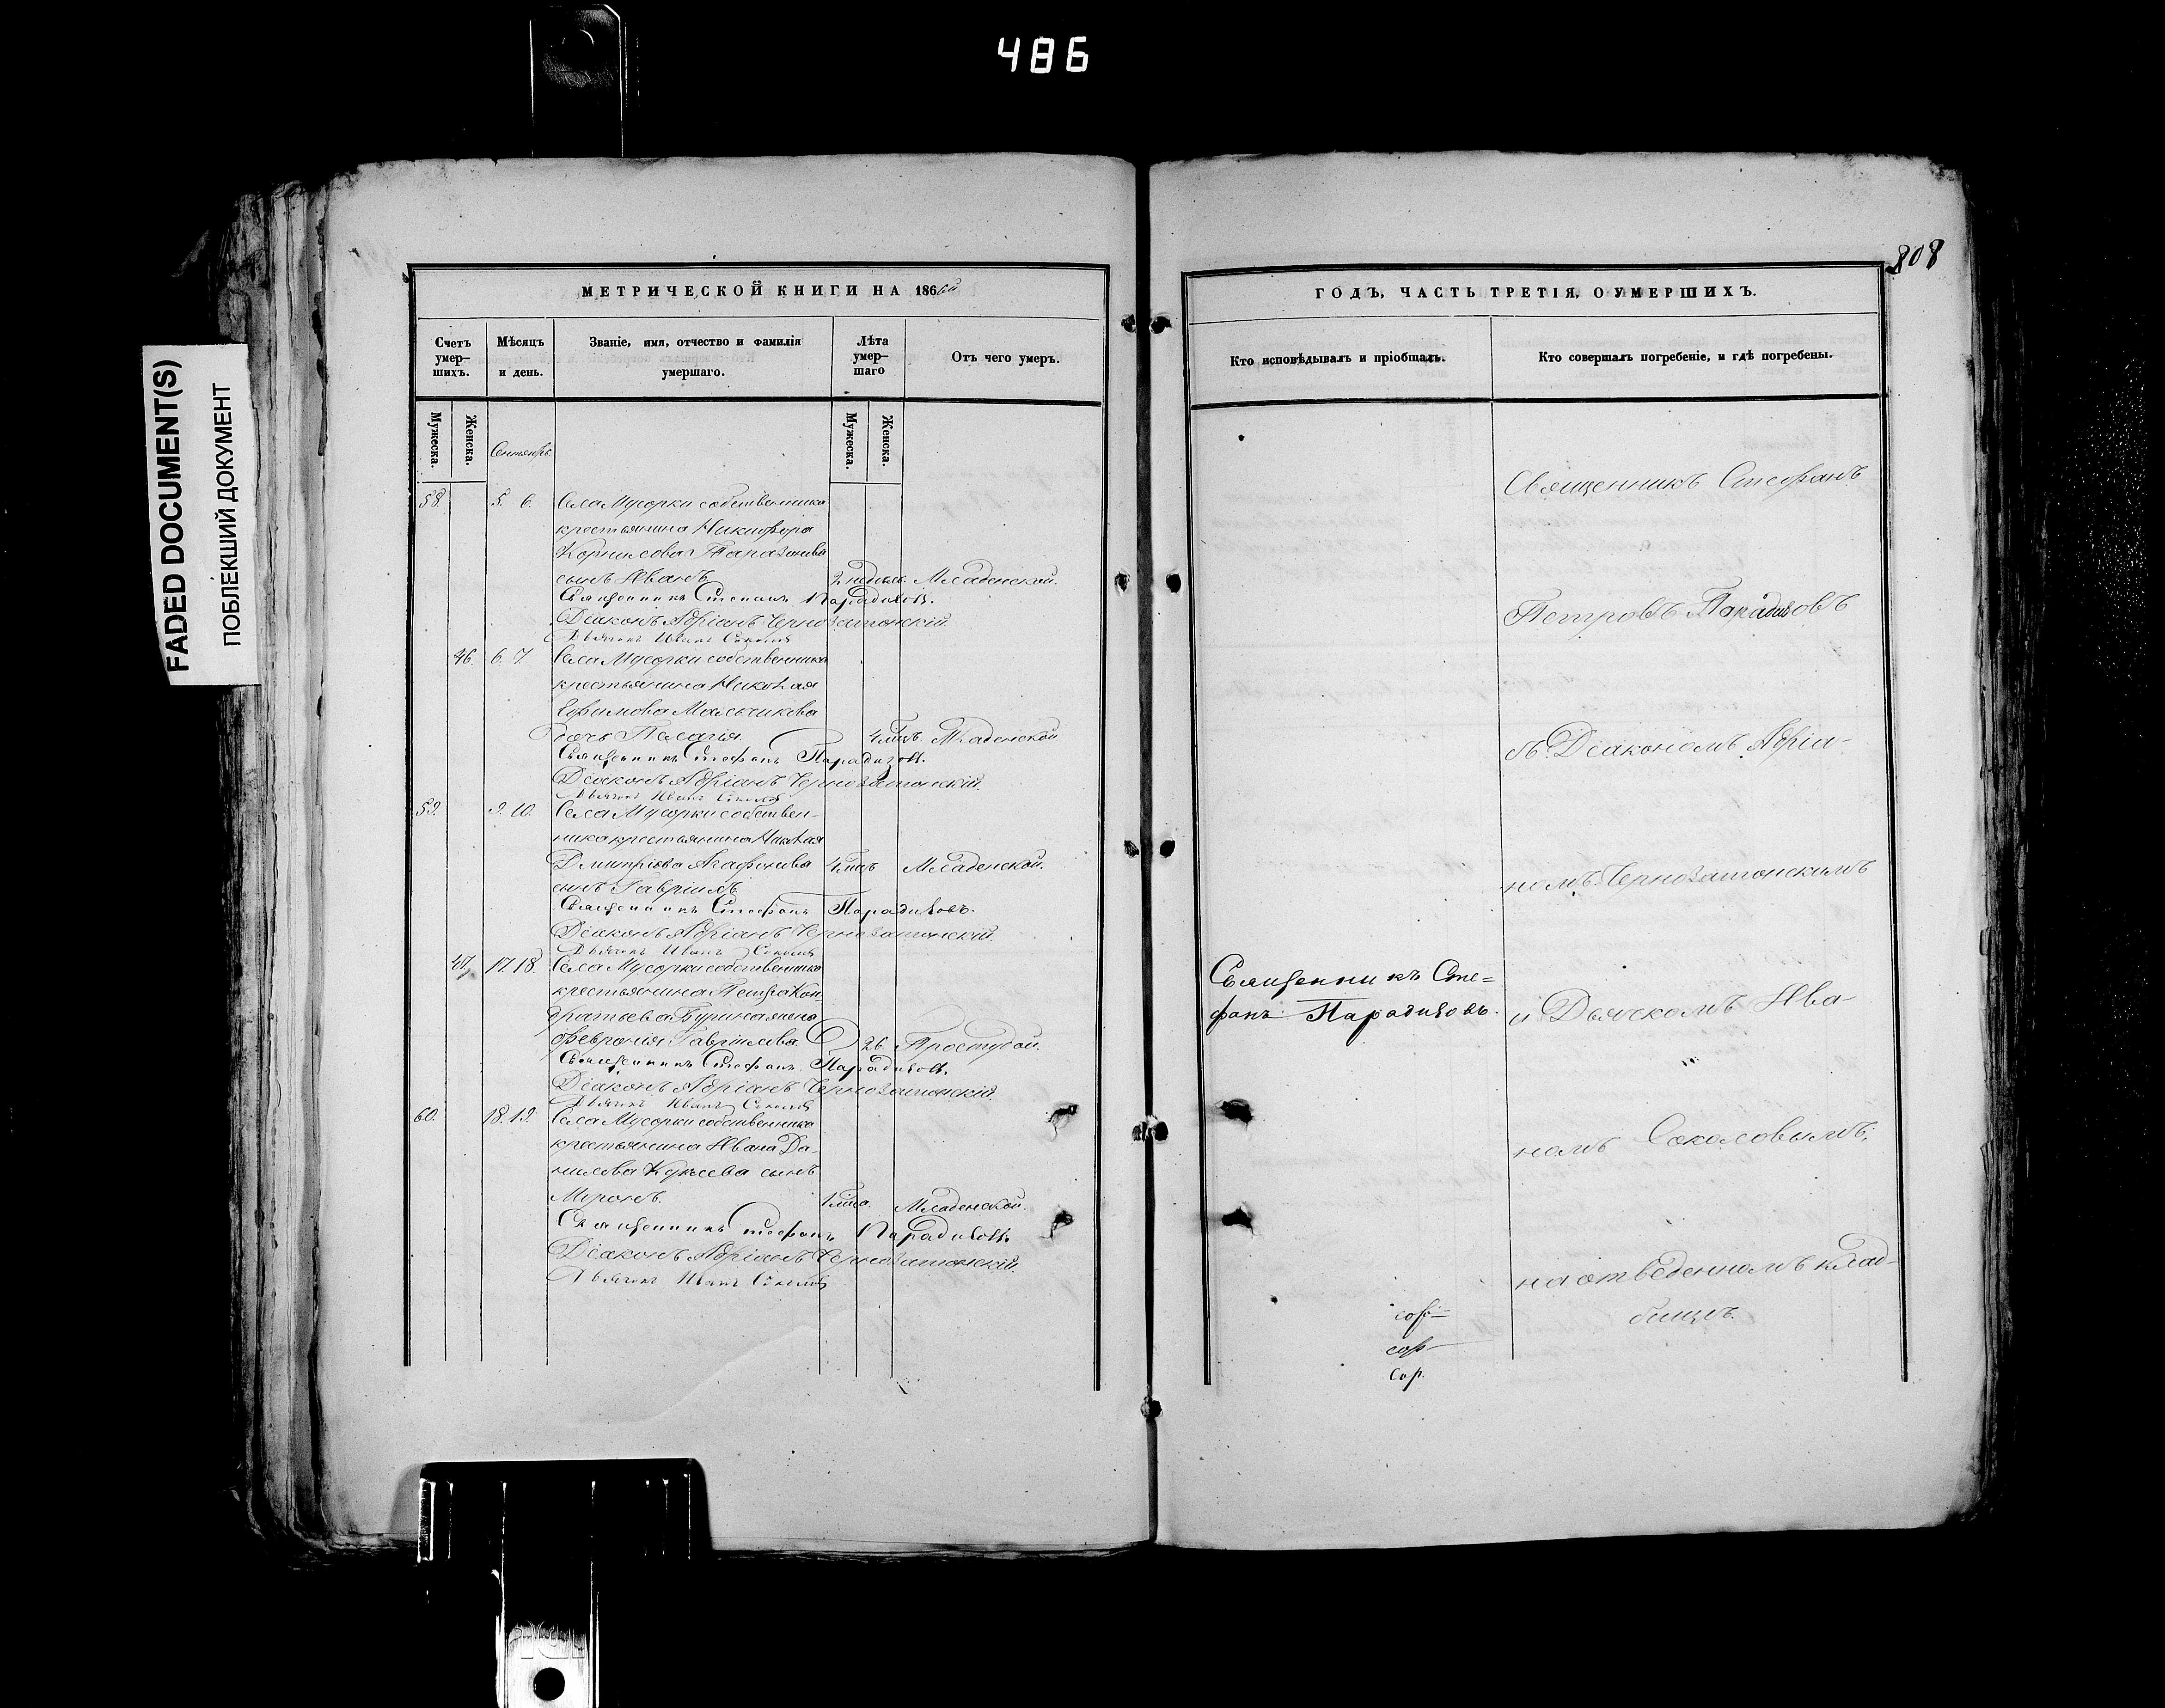 486
FADED DOCUMENT(S)
ПОБЛЕКШИЙ ДОКУМЕНТ
808
МЕТРИЧЕСКОЙ КНИГИ НА 1866й
Счетъ умер-шихъ.
Мѣсяцъ и день.
Званіе, имя, отчество и фамилія умершаго.
Лѣта умер-шаго
Отъ чего умеръ.
Мужеска.
Женска.
Мужеска.
Женска.
Сентябрь.
58. 5. 6. Села Мусорки собственника
крестьянина Никифора
Корнилова
сынъ Иванъ 2 недѣль Младенской.
Священникъ Стефанъ Парадизовъ.
Діаконъ Адріанъ Чернозатонскій.
Дьячокъ Иванъ Соколовъ
46. 6. 7. Села Мусорки собственника
крестьянина Николая
Ефимова Мальчикова
дочь Пелагія. 4 мцъ. Младенской
Священникъ Стефанъ Парадизовъ.
Діаконъ Адріанъ Чернозатонскій.
Дьячокъ Иванъ Соколовъ
59. 9. 10. Села Мусорки собствен-
ника крестьянина Николая
Дмитріева Агафонова 4 мцъ Младенской.
сынъ Гавріилъ.
Священникъ Стефанъ Парадизовъ.
Діаконъ Адріанъ Чернозатонскій.
Дьячокъ Иванъ Соколовъ
47. 17. 18. Села Мусорки собственника
крестьянина Петра Кон-
дратьева жена
Феврония Гаврилова. 26. Простудой.
Священникъ Стефанъ Парадизовъ.
Діаконъ Адріанъ Чернозатонскій.
Дьячокъ Иванъ Соколовъ
60. 18. 19. Села Мусорки собственника
крестьянина Ивана Да-
нилова сынъ
Миронъ. Младенской.
Священникъ Стефанъ Парадизовъ.
Діаконъ Адріанъ Чернозатонскій.
Дьячокъ Иванъ Соколовъ
ГОДЪ, ЧАСТЬ ТРЕТІЯ, О УМЕРШИХЪ.
Кто исповѣдывалъ и пріобщалъ.
Кто совершалъ погребеніе, и гдѣ погребены.
Священникъ Сте=
фанъ Парадизовъ.
Священникъ Стефанъ
Петровъ Парадизовъ
съ Діакономъ Адріа-
номъ Чернозатонскимъ
и Дьячкомъ Ива-
номъ Соколовымъ;
на отведенномъ клад-
бищѣ.